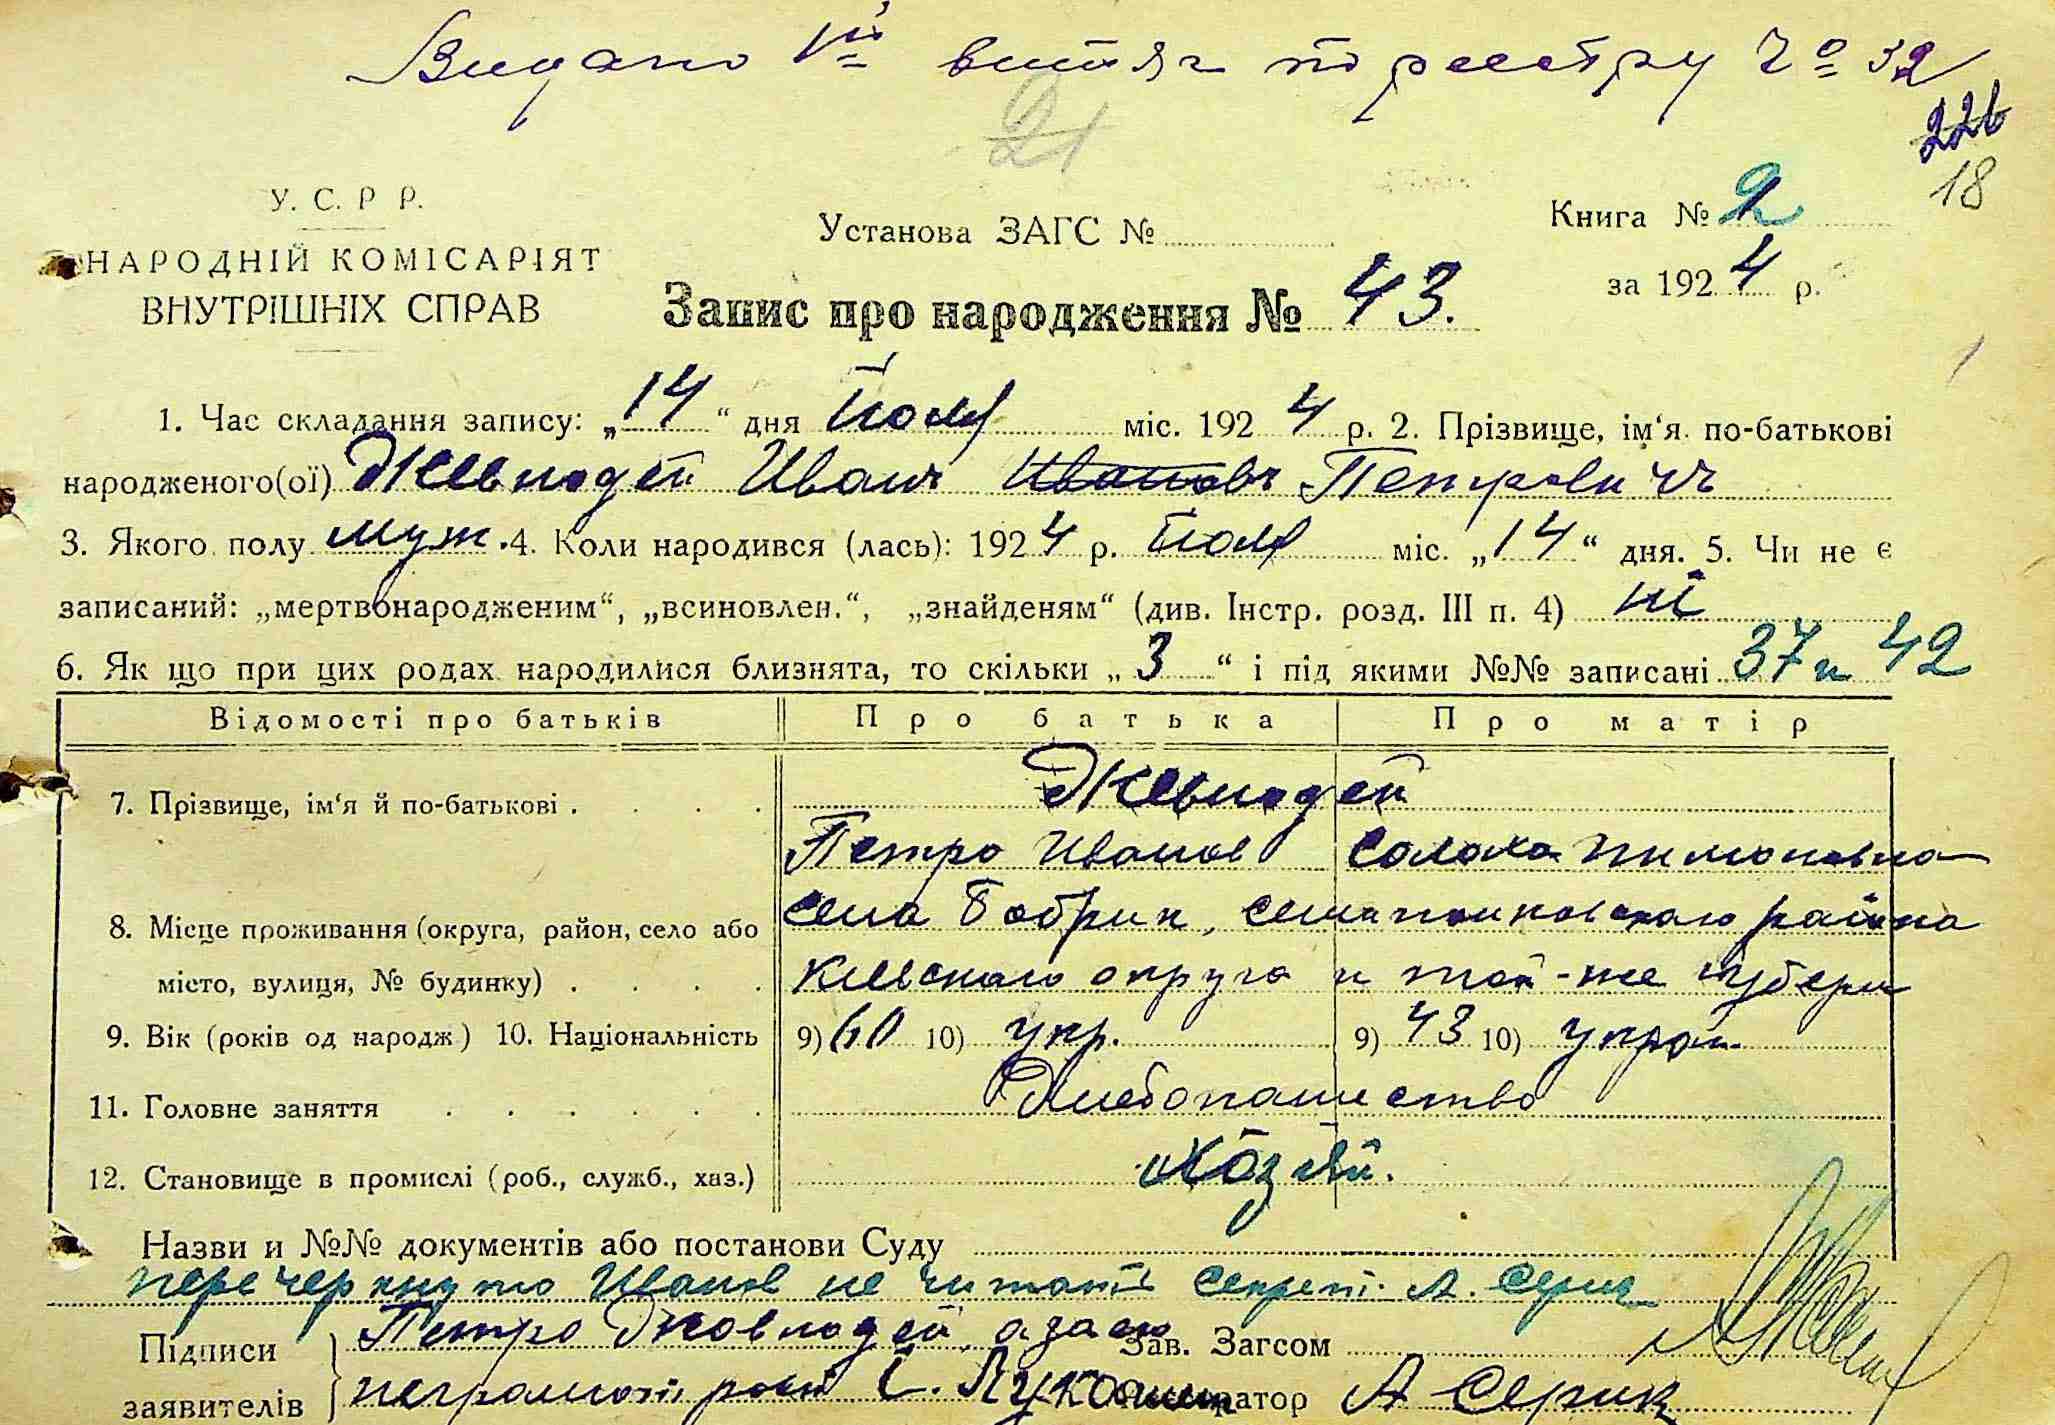 Видано 1ий витяг по реестру Чо 32
21
226
18
У. С. Р Р.
НАРОДНІЙ КОМІСАРІЯТ
ВНУТРІШНІХ СПРАВ
Установа ЗАГС №
Книга № 2
за 1924 р.
Запис про народження № 43.
1. Час складання запису: „14“ дня Июля міс. 1924 р. 2. Прізвище, ім‘я по-батькові
народженого(ої) Иван Иванов Петрович
3. Якого полу муж. 4. Коли народився (лась): 1924 р. Июля міс. „14“ дня. 5. Чи не є
записаний: „мертвонародженим“, „всиновлен.“, „знайденям“ (див. Інстр. розд. III п. 4) ні
6. Як що при цих родах народилися близнята, то скільки „3“ і під якими №№ записані 37 и 42
Відомості про батьків Про батька Про матір
7. Прізвище, ім‘я й по-батькові . . . .
Петро Иванов
8. Місце проживання (округа, район, село або
місто, вулиця, № будинку) . . . .
села Бобрик, района
Киевского округа и той-же губерн
9. Вік (років од народж) 10. Національність 9) 60 10) укр. 9) 43 10) украи.
11. Головне заняття . . . . . . Хлебопашество
12. Становище в промислі (роб., служб., хаз.) Хозяй.
Назви и №№ документів або постанови Суду
перечеркнуто Иванов не читать секрет. А. Серик
Підписи
заявителів
Петро а за его
неграмотн росп С.
Зав. Загсом
Реєстратор А Серик